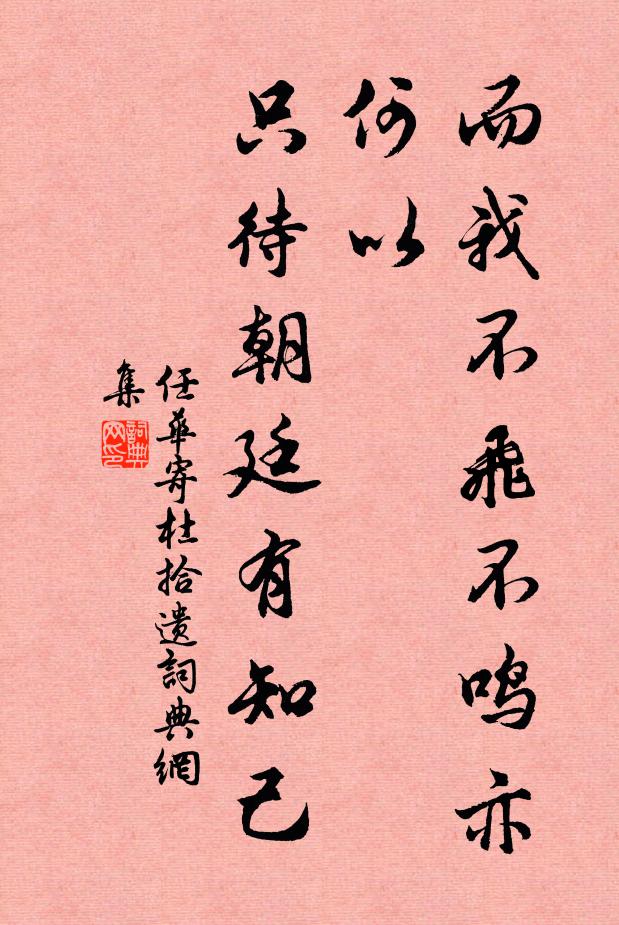 而我不飛不鸣亦
何以
只待朝廷有知己
任華寄杜拾遺詞典網
集
詞典
网印